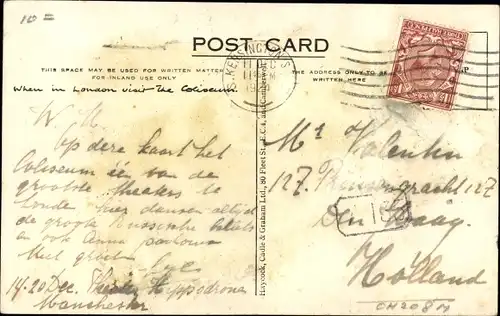 10=
POST CARD
KENSINGTON S
11 DEC
THIS SPACE MAY BE USED FOR WRITTEN MATTER
FOR INLAND USE ONLY
THE ADDRESS ONLY TO BE
WRITTEN HERE
When in London visit The Coliseum
W. M.
Op deze kaart het
Coliseum één van de
grootste theaters te
Londen hier dansen altijd
de groote Russische
en ook Anna Pavlowa
Met groeten
14-20 Dec. Hippodrome
Manchester
Haycock, Cadle & Graham Ltd., 80 Fleet St., E.C.4, and Camberwell
Mr Valentin
127. gracht 127
Den Haag.
Holland
CH208M